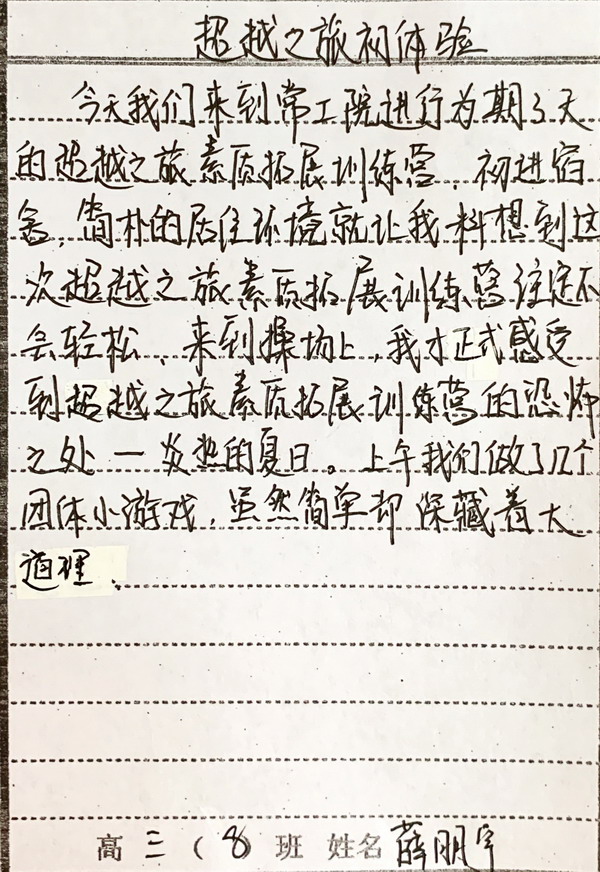 超越之旅初体验
今天我们来到常工院进行为期3天
的超越之旅素质拓展训练营,初进宿
舍,简朴的居住环境就让我料想到这
次超越之旅素质拓展训练营注定不
会轻松,来到操场上,我才正式感受
到超越之旅素质拓展训练营的恐怖
之处—炎热的夏日。上午我们做了几个
团体小游戏,虽然简单却深藏着大
道理.
高三(8)班 姓名薛朋宇